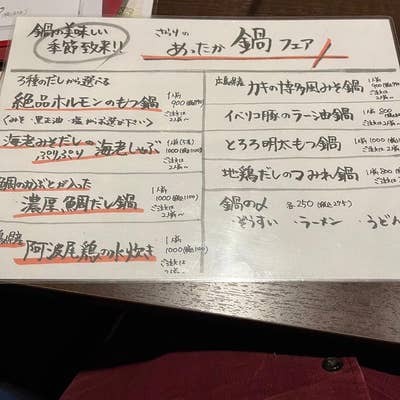 鍋の美味しい
季節到来!!
きらりの
あったか 鍋フェア
3種のだしから選べる
絶品ホルモンのもつ鍋
(みそ・黒正油・塩からお選び下さい)
1人前
900
ご注文は
2人前〜
海老みそだしの
ぷりぷり 海老しゃぶ
1人前
1000(税込1100)
ご注文は
2人前〜
鯛のかぶとが入った
濃厚鯛だし鍋
1人前
1000(税込1100)
ご注文は
2人前〜
阿波尾鶏の水炊き
1人前
1000(税込1100)
ご注文は
広島県産
カキの博多風みそ鍋
1人前
900
ご注文は
2人前〜
イベリコ豚のラー油鍋
1人前
ご注文は
とろろ明太もつ鍋
1人前 1000
ご注文は
2人前〜
地鶏だしのつみれ鍋
1人前 800
ご注文は
鍋の〆 各250(税込275)
・ぞうすい ・ラーメン ・うどん